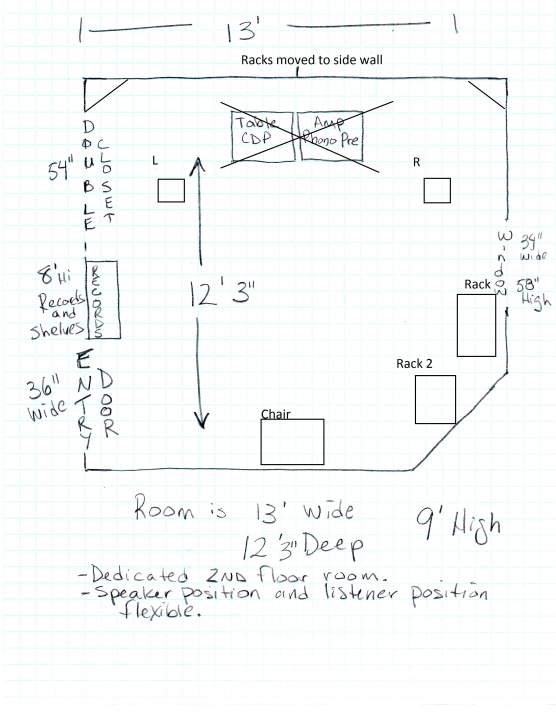 13'
Racks moved to side wall
Table
CDP
Amp
Phono Pre
L
R
54"
DOUBLE
CLOSET
Window
34"
Wide
58"
High
8' Hi
Records
and
Shelves
RECORDS
12' 3"
Rack
Rack 2
36"
Wide
ENTRY
DOOR
Chair
Room is 13' Wide
12'3" Deep
9' High
-Dedicated 2ND floor room.
-Speaker position and listener position
flexible.